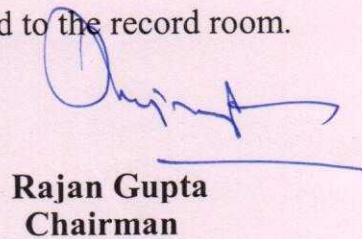 d to the record room.
Rajan Gupta
Chairman